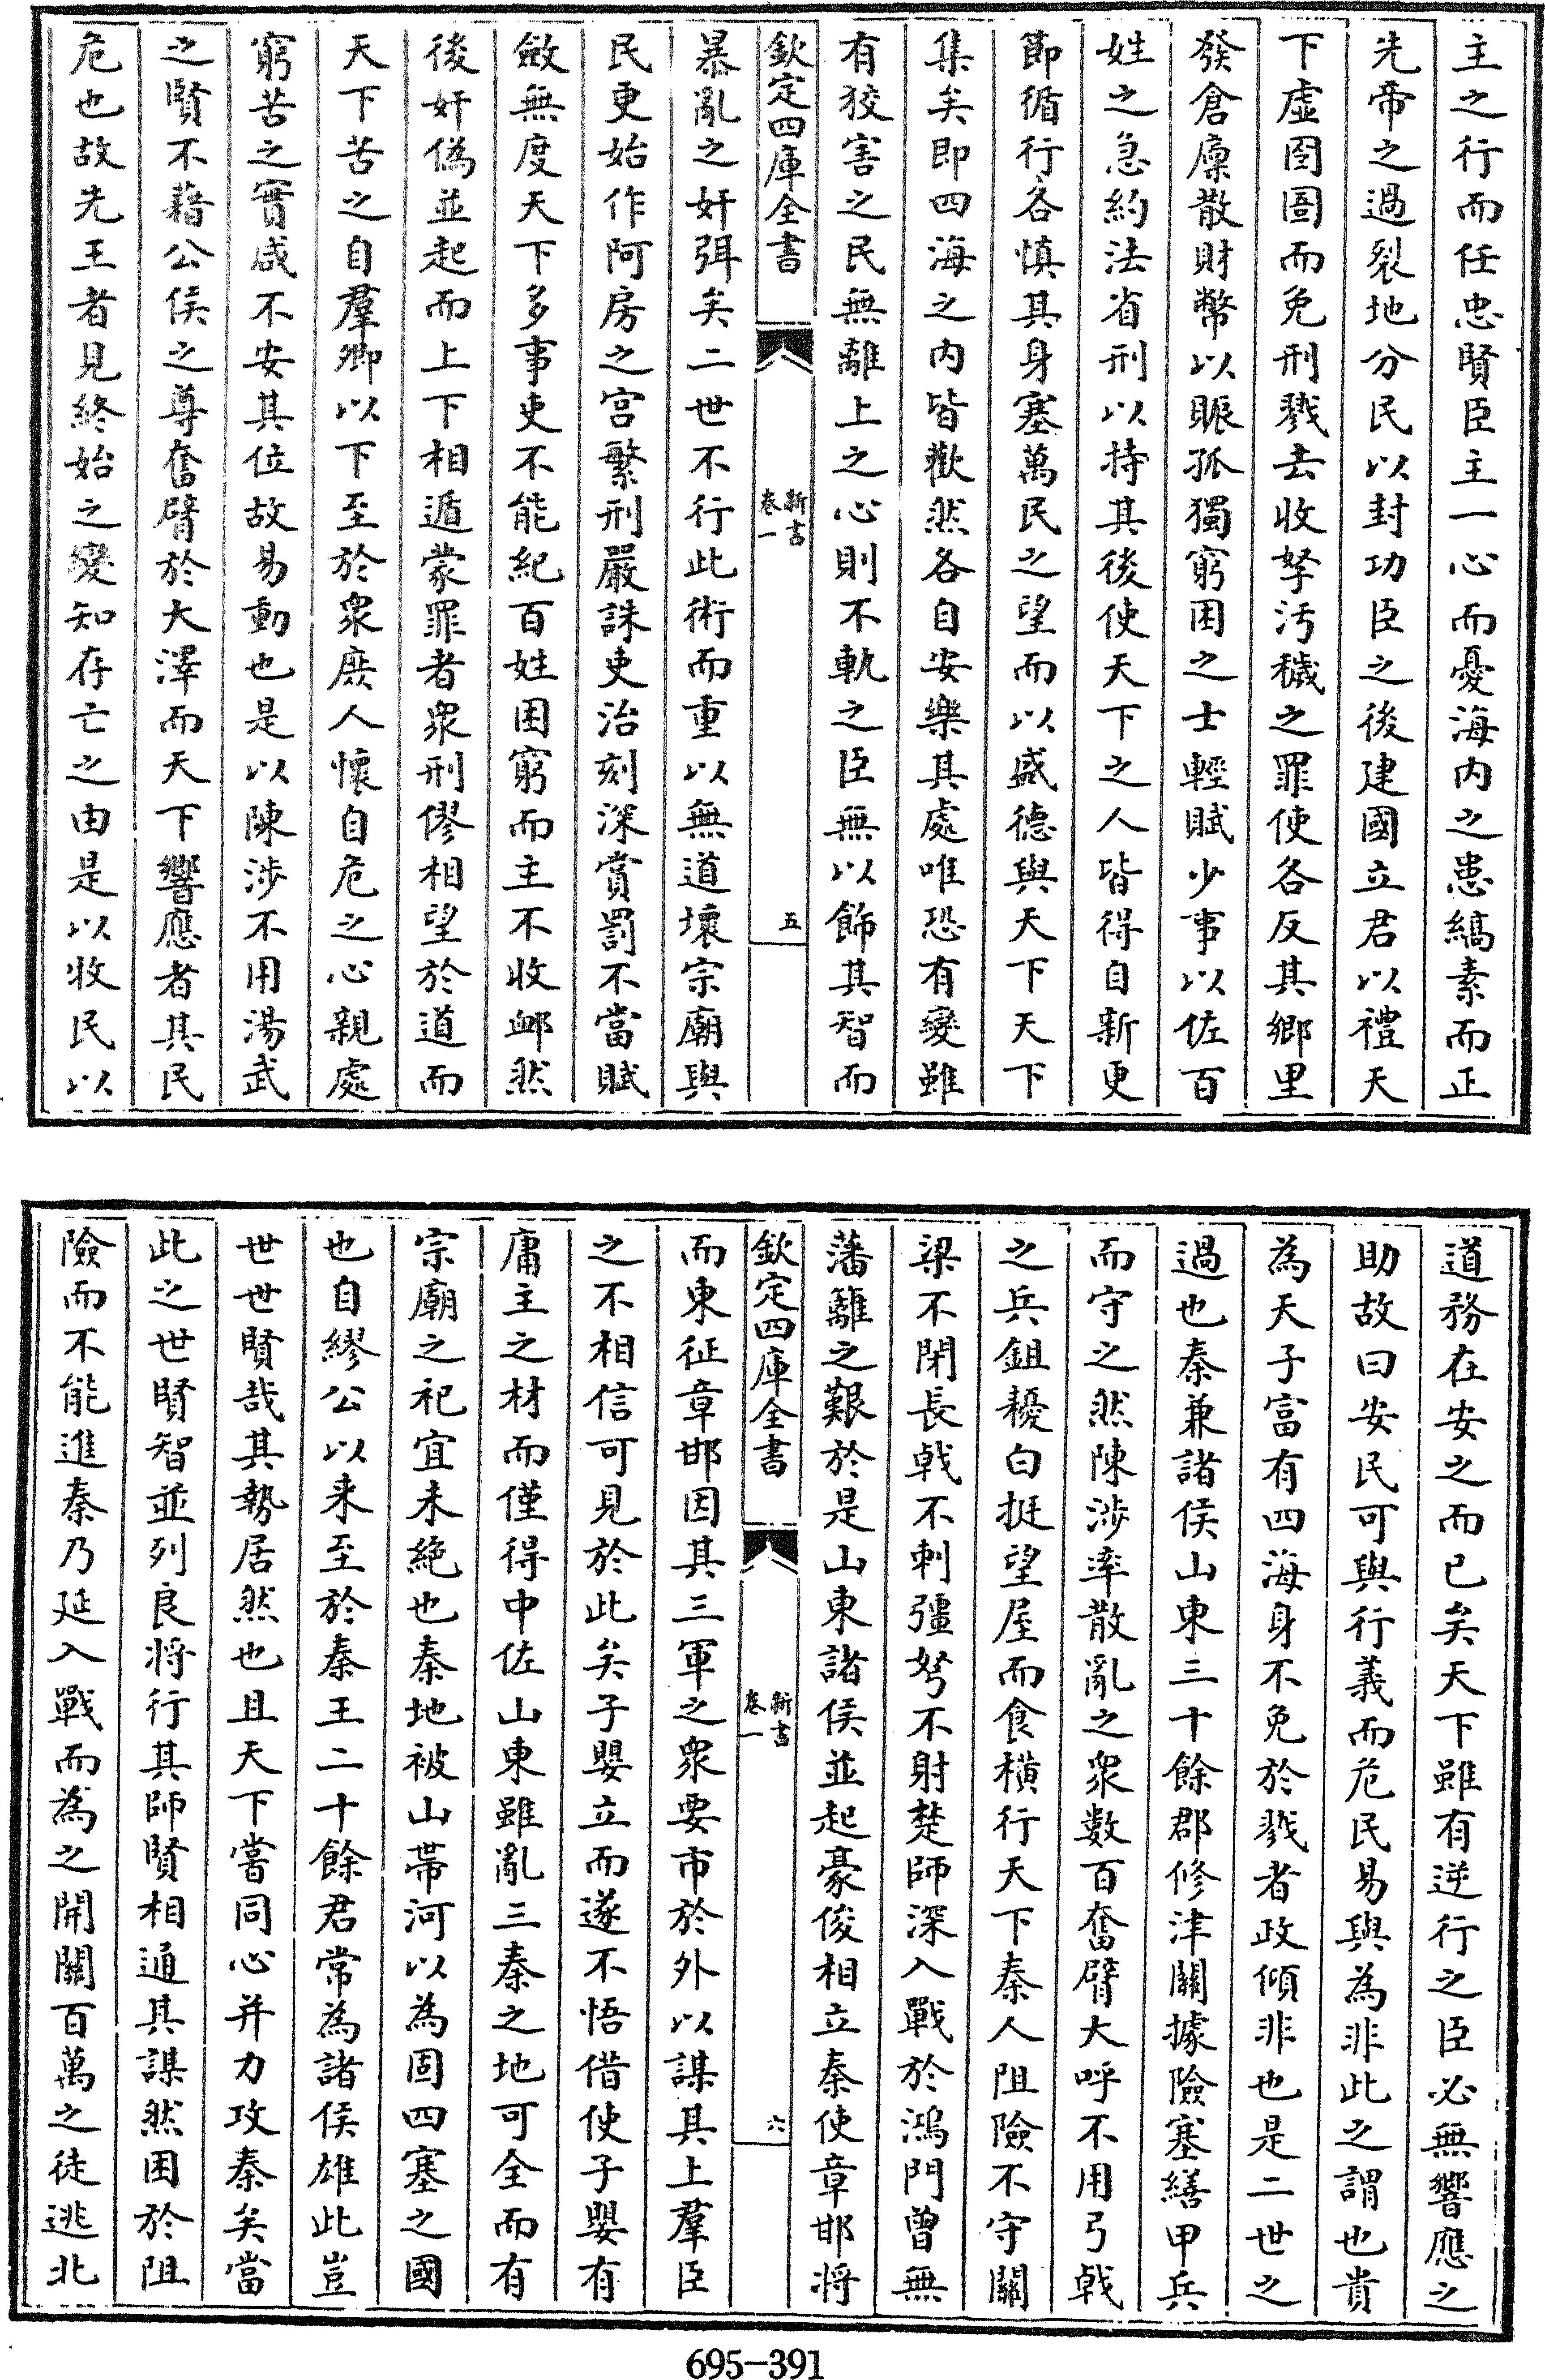 主之行而任忠賢臣主一心而憂海内之患縞素而正
先帝之過裂地分民以封功臣之後建國立君以禮天
下虛囹圄而免刑戮去收孥汚穢之罪使各反其鄉里
發倉廩散財幣以賑孤獨窮困之士輕賦少事以佐百
姓之急約法省刑以持其後使天下之人皆得自新更
節循行各慎其身塞萬民之望而以盛德與天下天下
集矣即四海之内皆歡然各自安樂其處唯恐有變雖
有狡害之民無離上之心則不軌之臣無以飾其智而
欽定四庫全書
新書
卷一
五
暴亂之奸弭矣二世不行此術而重以無道壞宗廟與
民更始作阿房之宫繁刑嚴誅吏治刻深賞罰不當賦
斂無度天下多事吏不能紀百姓困窮而主不收䘏然
後奸偽並起而上下相遁蒙罪者衆刑僇相望於道而
天下苦之自羣卿以下至於衆庶人懷自危之心親處
窮苦之實咸不安其位故易動也是以陳涉不用湯武
之賢不藉公侯之尊奮臂於大澤而天下響應者其民
危也故先王者見終始之變知存亡之由是以牧民以
道務在安之而已矣天下雖有逆行之臣必無響應之
助故曰安民可與行義而危民易與為非此之謂也貴
為天子富有四海身不免於戮者政傾非也是二世之
過也秦兼諸侯山東三十餘郡修津關據險塞繕甲兵
而守之然陳涉率散亂之衆數百奮臂大呼不用弓戟
之兵鉏耰白挺望屋而食横行天下秦人阻險不守關
梁不閉長戟不刺彊弩不射楚師深入戰於鴻門曾無
藩籬之艱於是山東諸侯並起豪俊相立秦使章邯将
欽定四庫全書
新書
卷一
六
而東征章邯因其三軍之衆要市於外以謀其上羣臣
之不相信可見於此矣子嬰立而遂不悟借使子嬰有
庸主之材而僅得中佐山東雖亂三秦之地可全而有
宗廟之祀宜未絶也秦地被山帶河以為固四塞之國
也自繆公以来至於秦王二十餘君常為諸侯雄此豈
世世賢哉其勢居然也且天下嘗同心并力攻秦矣當
此之世賢智並列良将行其師賢相通其謀然困於阻
險而不能進秦乃延入戰而為之開關百萬之徒逃北
695-391